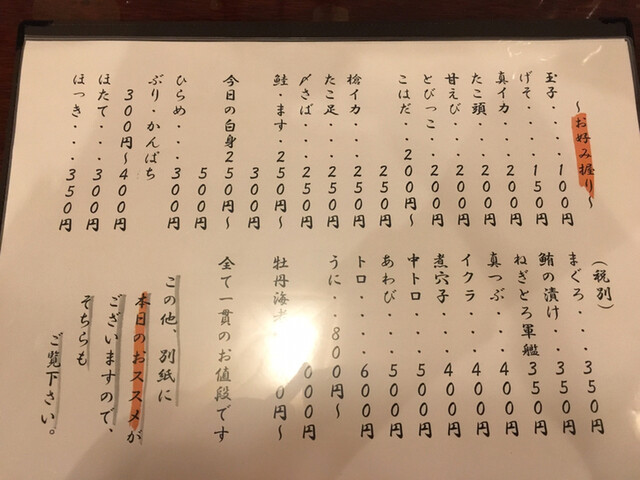 〜お好み握り〜
玉子・・・・100円
げそ・・・・150円
真イカ・・・200円
たこ頭・・・200円
甘えび・・・200円
とびっこ・・200円
こはだ・・200円〜
250円
槍イカ・・・250円
たこ足・・・250円
〆さば・・・250円
鮭・ます・250円〜
300円
今日の白身250円〜
500円
ひらめ・・・300円
ぶり・かんぱち
300円〜400円
ほたて・・・300円
ほっき・・・350円
(税別)
まぐろ・・・350円
鮪の漬け・・350円
ねぎとろ軍艦350円
真つぶ・・・400円
イクラ・・・400円
煮穴子・・・400円
中トロ・・・500円
あわび・・・500円
トロ・・・・600円
うに・・800円〜
000円
牡丹海老 0円〜
全て一貫のお値段です
この他、別紙に
本日のおススメが
ございますので、
そちらも
ご覧下さい。